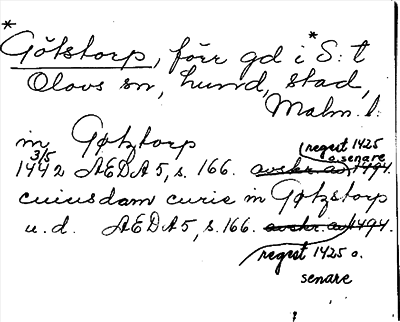 *Götstorp, förr gd i *S:t
Olovs sn, Lund, stad,
Malm. l.
in Gøtztorp
regest 1425
o. senare
3/5
1442 AEDA 5, s. 166. avskr. av 1494.
cuiusdam curie in Gøtzstorp
u.d. AEDA 5, s. 166. avskr. av 1494.
regest 1425 o.
senare